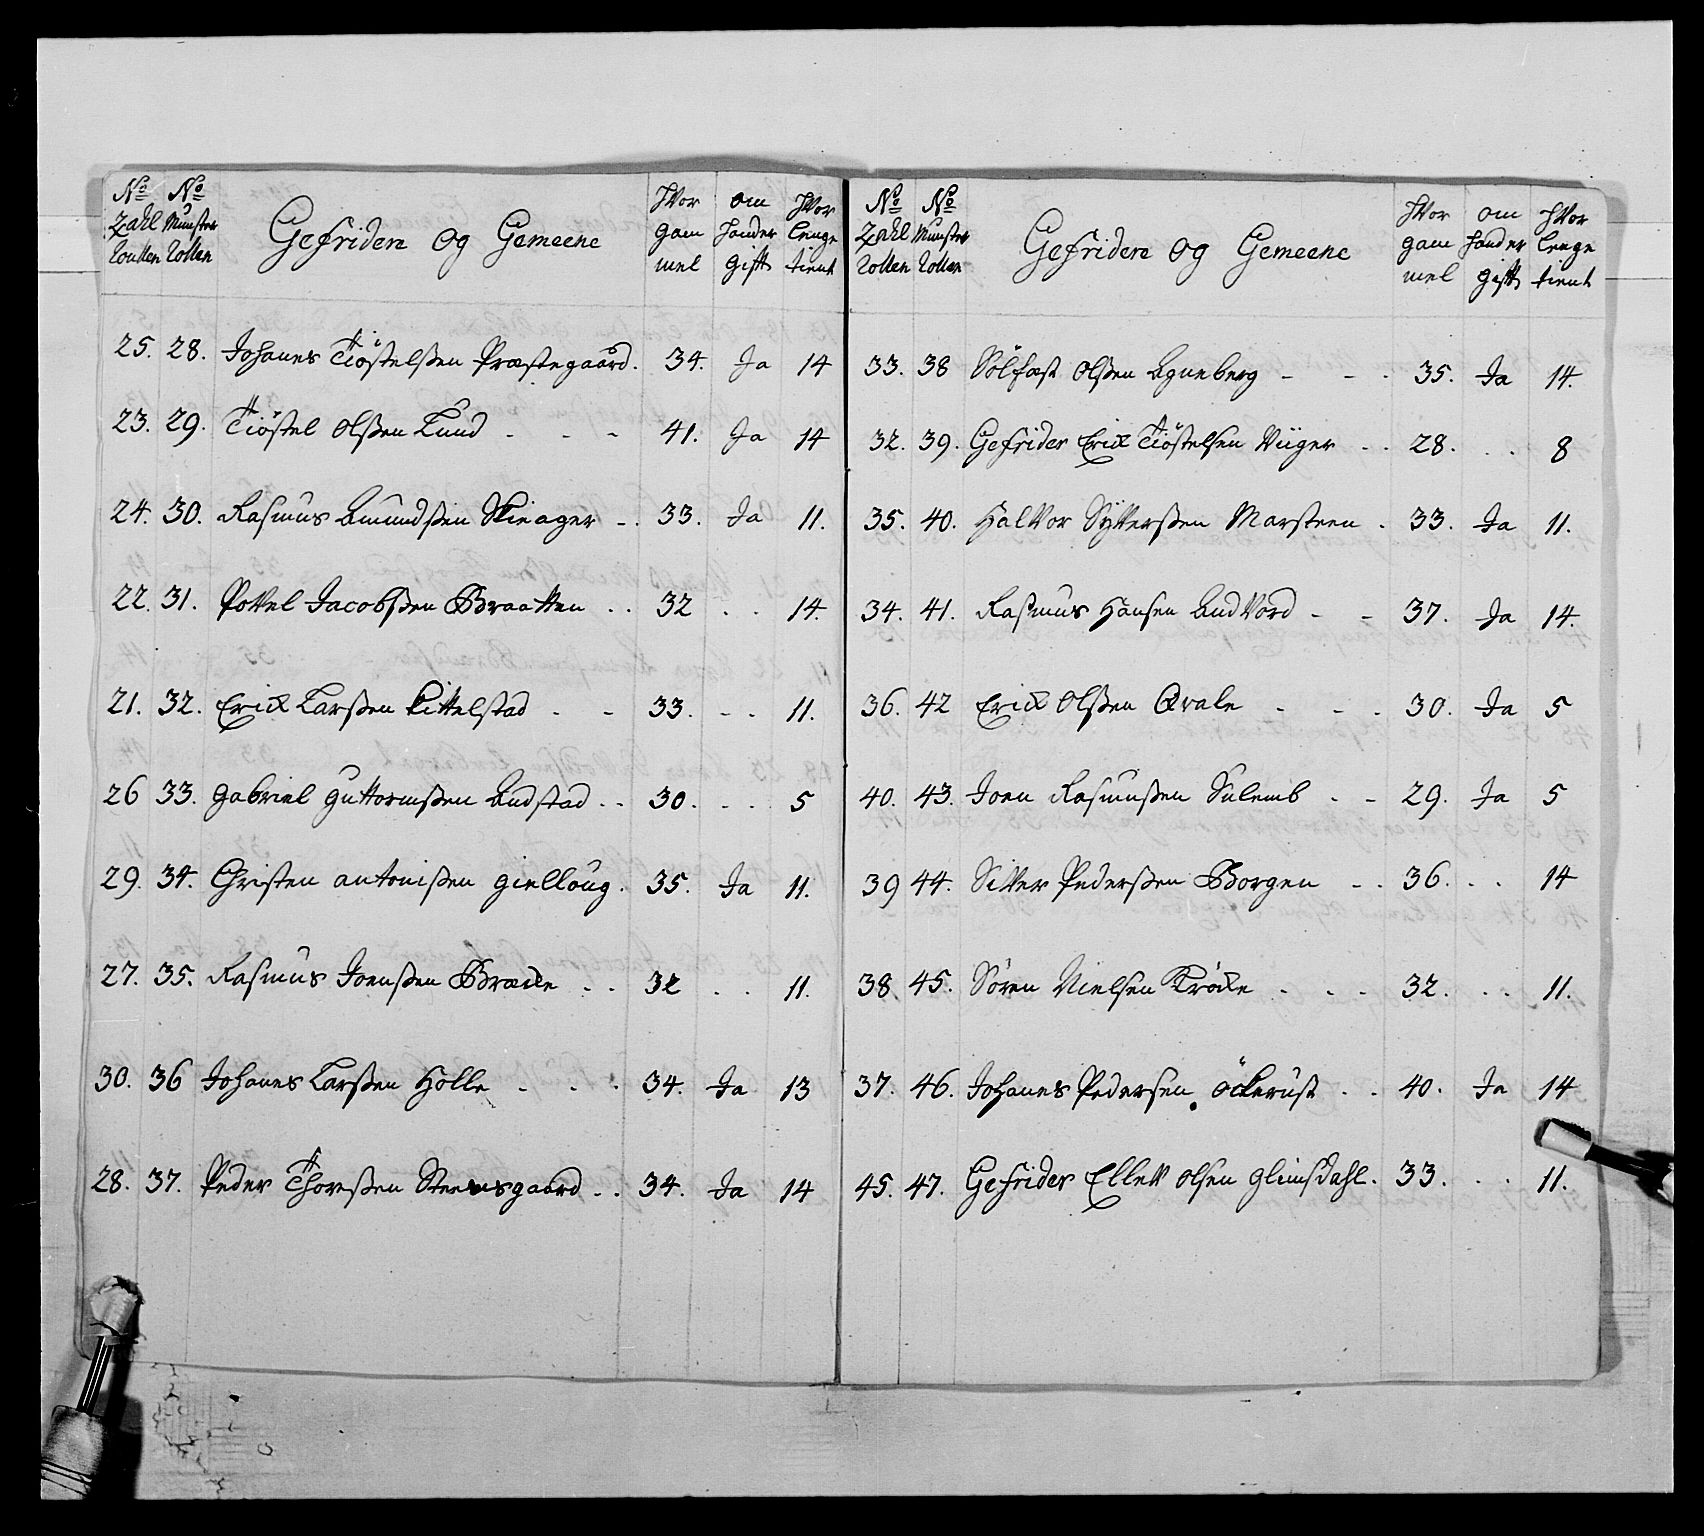 No No
Zahl Munster
Roullen Rollen
Gefridere og Gemeene
Hvor gammel
om hand er gift
Hvor lenge tient
25. 28. Johanes Tiöstelßen Præstegaard. 34. Ja 14
23. 29. Tiöstel Olßen Lund - - - 41. Ja 14
24. 30. Rasmus Amundßen Skieager - . 33. Ja 11.
22. 31. Povel Jacobßen Braatten . . 32 . . 14.
21. 32. Erich Larßen Kittelstad - - 33. - . 11.
26 33. Gabriel Guttormßen Audstad . . 30. . . 5
29. 34. Christen Antonißen Gielloug. 35. Ja 11.
27. 35. Rasmus Joenßen Brække . . 32 . . 11.
30. 36 Johanes Larßen Holle . . . 34. Ja 13
28. 37. Peder Thorßen Steensgaard . . 34. Ja 14
No No
Zahl Munster
Rollen Rollen
Gefridere og Gemeene
Hvor gammel
om hand er gift
Hvor lenge tient
33. 38 Sölfast Olßen Agneberg - - . 35. Ja 14.
32. 39. Gefrider Erich Tiöstelsen Viiger . . 28. . . 8
35. 40. Halvor Sÿverßen Marsteen . 33. Ja 11.
34. 41. Rasmus Hansen Andvord - - 37. Ja 14.
36. 42 Erich Olßen Qvale - - . 30. Ja 5
40. 43. Joen Rasmusßen Sulemb . - 29. Ja 5
39 44. Siver Pederßen Borgen - . 36. . . 14
38. 45. Sören Nielsen Kröcke . . . 32. . . 11.
37. 46. Johanes Pedersen Öckerust . . 40. Ja 14
45. 47. Gefrider Ellev Olsen Glimsdahl. 33. . . 11.